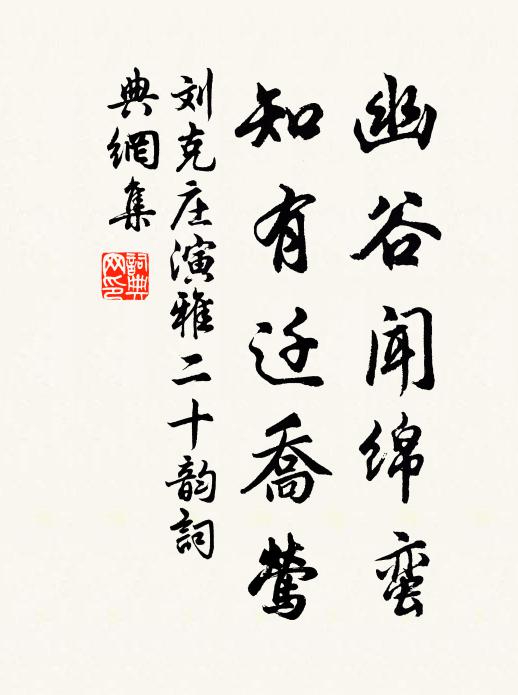 幽谷闻绵蛮
知有迁喬莺
刘克庄演雅二十韵詞
典網集
詞典网印